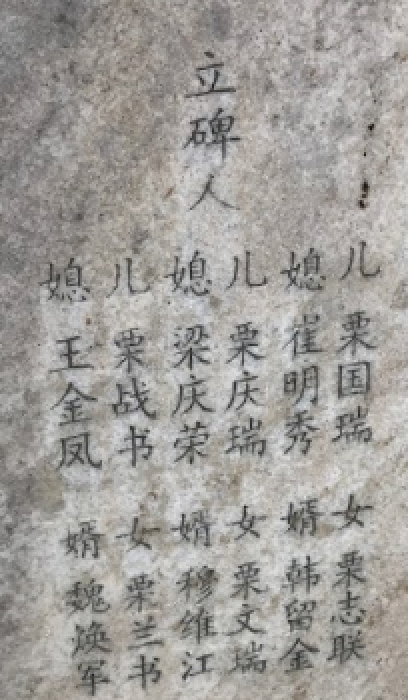 立碑人
儿 栗国瑞
媳 崔明秀
儿 栗庆瑞
媳 梁庆荣
儿 栗战书
媳 王金凤
女 栗志联
婿 韩留金
女 栗文瑞
婿 穆维江
女 栗兰书
婿 魏焕军